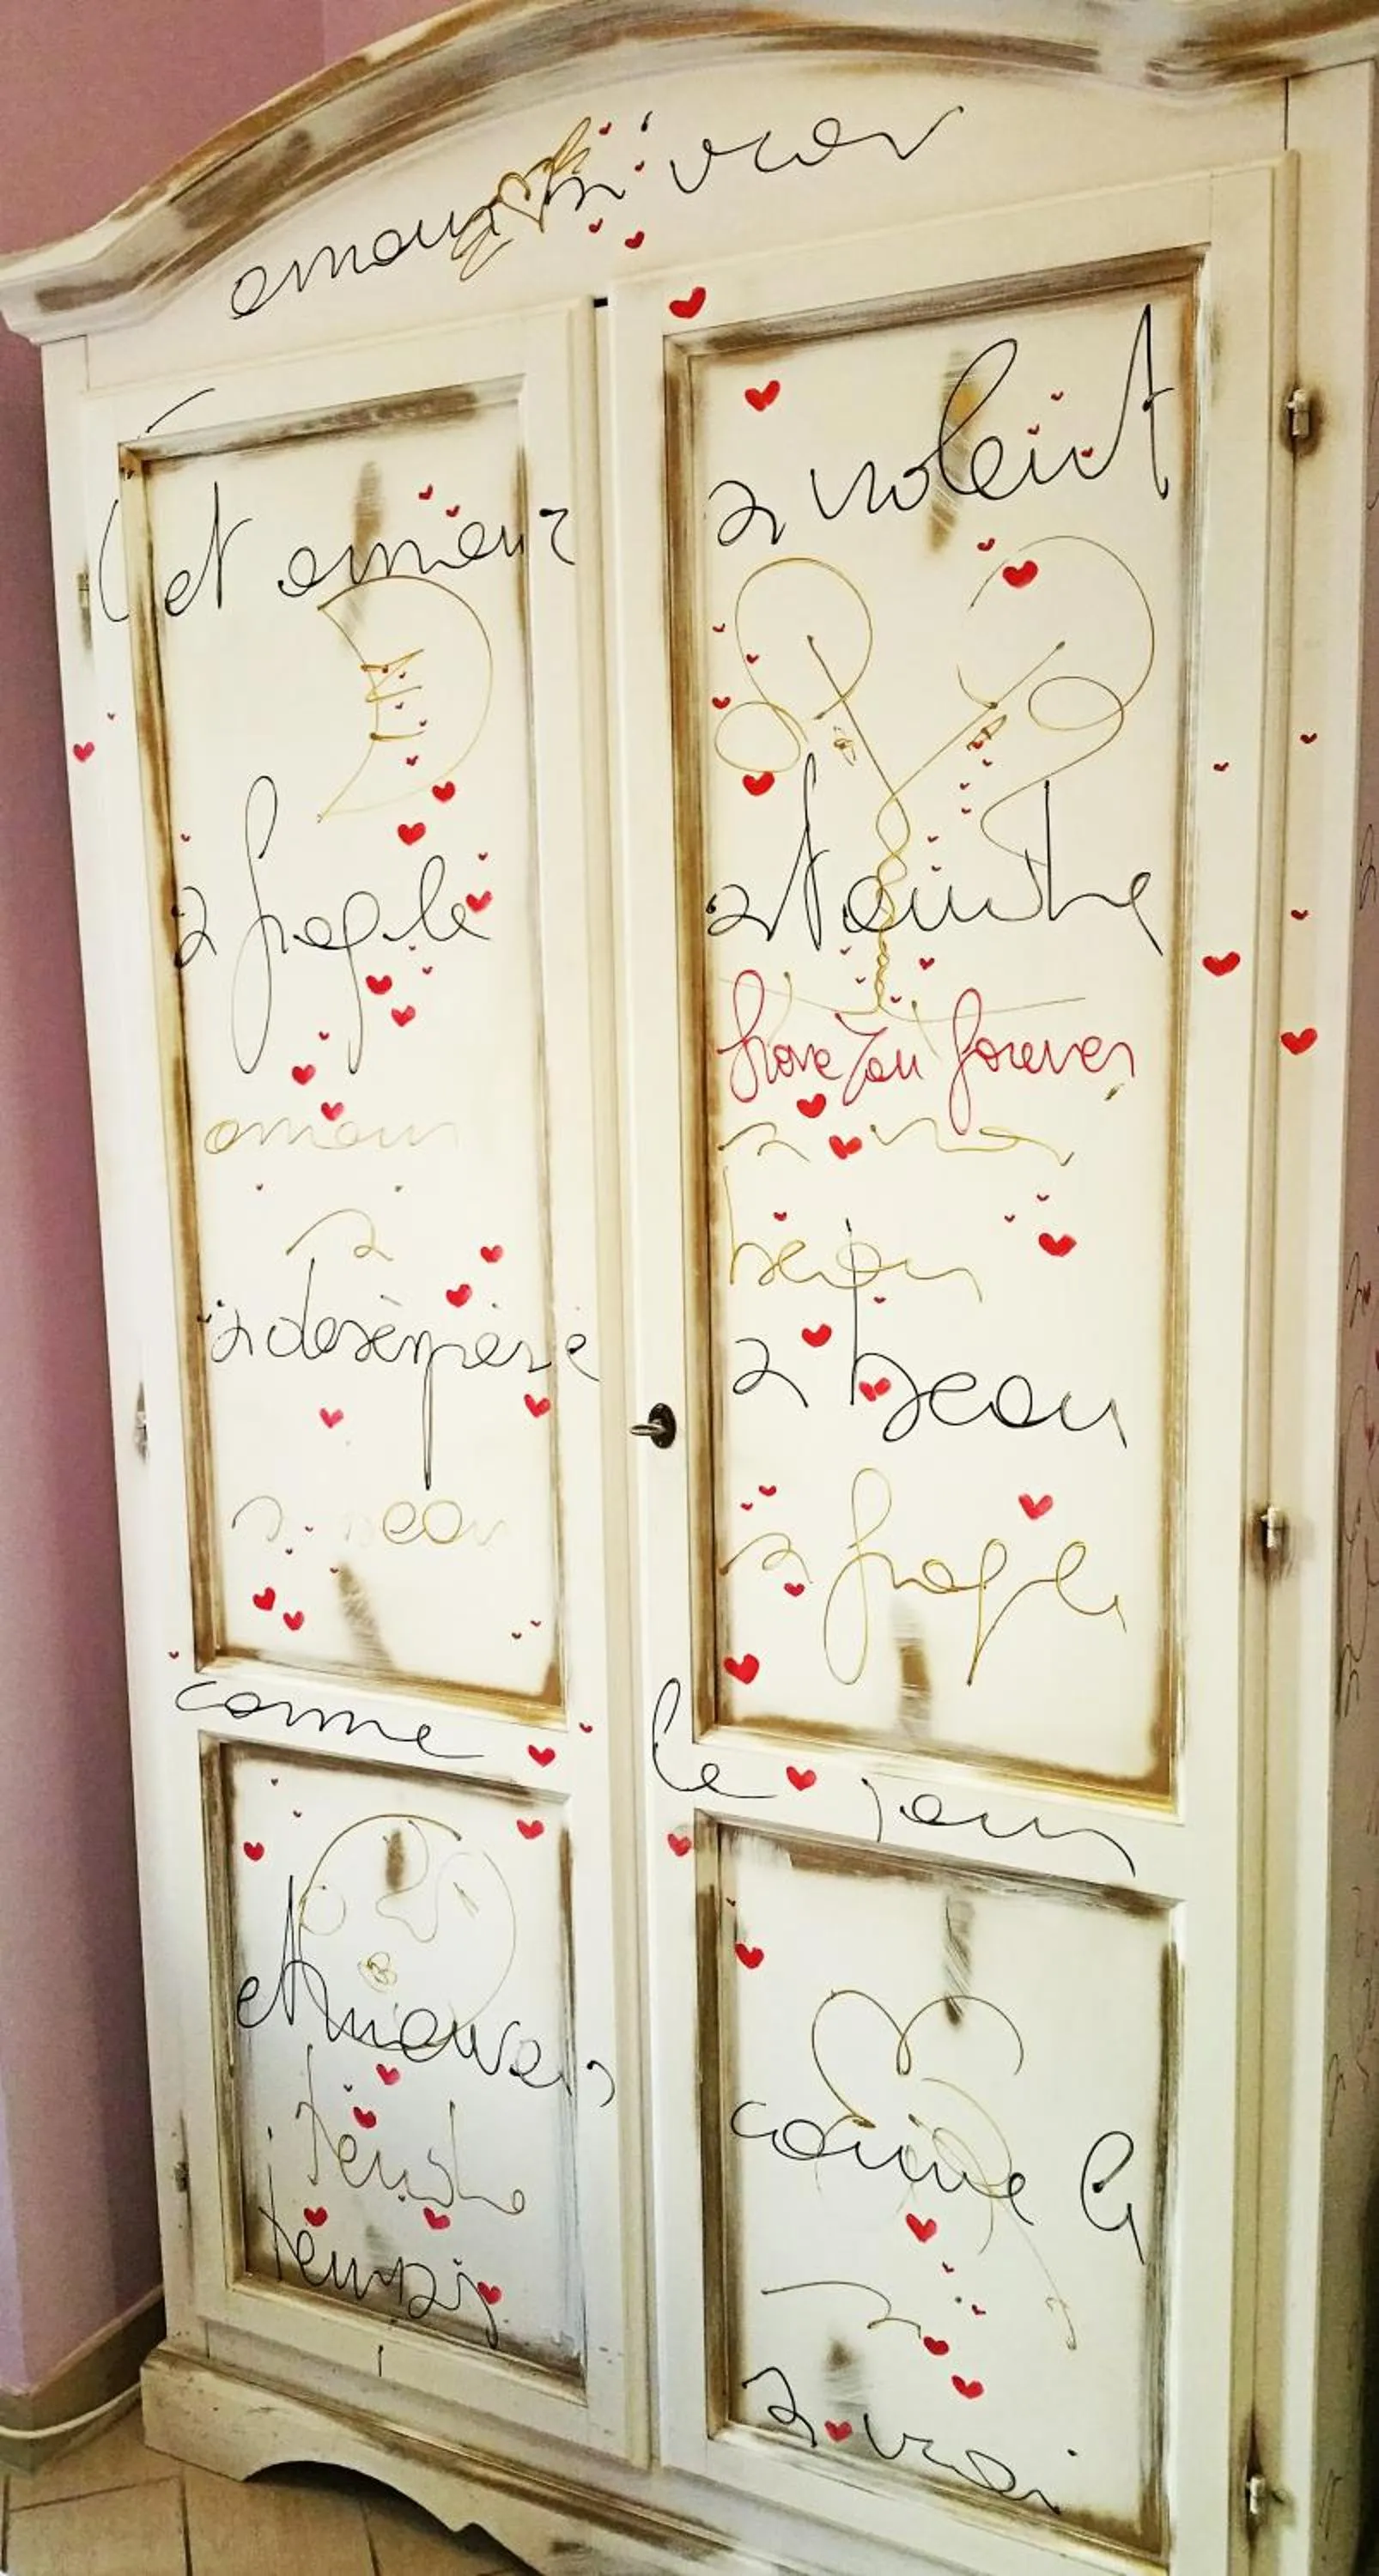 amour si vrai
Cet amour
si violent
si fragile
si tendre
love you forever
amour
si
si désespéré
si beau
si fragile
comme le jour
et mauvais
comme le
tendre
temps
si vrai